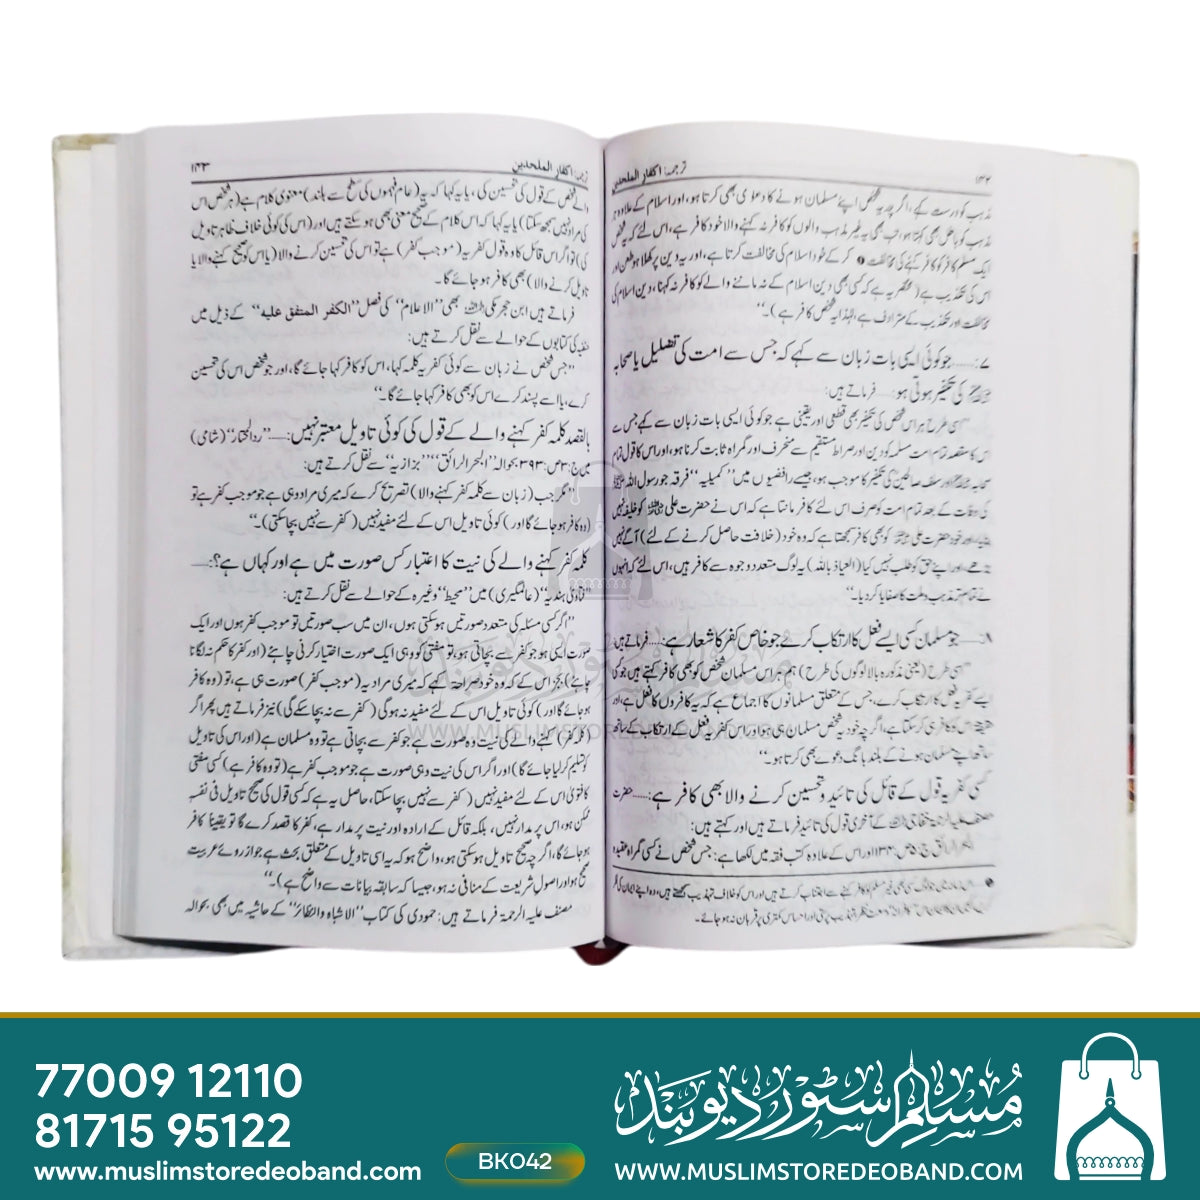 ۱۴۲
ترجمہ: اکفار الملحدین
مذہب کو درست کہے، اگرچہ یہ شخص اپنے مسلمان ہونے کا دعویٰ بھی کرتا ہو، اور اسلام کے علاوہ ہر
مذہب کو باطل بھی کہتا ہو، تب بھی یہ غیر مذہب والوں کو کافر نہ کہنے والا خود کافر ہے، اس لئے کہ یہ شخص
ایک مسلم کافر کو کافر کہنے کی مخالفت کر کے خود اسلام کی مخالفت کرتا ہے، اور یہ دین پر کھلا ہوا طعن اور
اس کی تکذیب ہے (مختصر یہ ہے کہ کسی بھی دین اسلام کے نہ ماننے والے کو کافر نہ کہنا، دین اسلام کی
مخالفت اور تکذیب کے مترادف ہے، لہٰذا یہ شخص کافر ہے)۔"
۷:......جو کوئی ایسی بات زبان سے کہے کہ جس سے امت کی تضلیل یا صحابہ
کی تکفیر ہوتی ہو:......فرماتے ہیں:
"اسی طرح ہر اس شخص کی تکفیر بھی قطعی اور یقینی ہے جو کوئی ایسی بات زبان سے کہے جس سے
اس کا مقصد تمام امت مسلمہ کو دین اور صراط مستقیم سے منحرف اور گمراہ ثابت کرنا ہو، اور اس کا قول تمام
صحابہ اور سلف صالحین کی تکفیر کا موجب ہو، جیسے رافضیوں میں "کمیلیہ" فرقہ جو رسول اللہ ﷺ
کی وفات کے بعد تمام امت کو صرف اس لئے کافر مانتا ہے کہ اس نے حضرت علی کو خلیفہ نہیں
اور خود حضرت علی کو بھی کافر سمجھتا ہے کہ وہ خود (خلافت حاصل کرنے کے لئے) آگے نہیں
بڑھے، اور اپنے حق کو طلب نہیں کیا (العیاذ باللہ) یہ لوگ متعدد وجوہ سے کافر ہیں، اس لئے کہ انہوں
نے تمام تر مذہب و ملت کا صفایا کر دیا۔"
۸:......جو مسلمان کسی ایسے فعل کا ارتکاب کرے جو خاص کفر کا شعار ہے:......فرماتے ہیں:
"اسی طرح (یعنی مذکورہ بالا لوگوں کی طرح) ہم ہر اس مسلمان شخص کو بھی کافر کہتے ہیں جو کوئی
ایسے کفریہ فعل کا ارتکاب کرے، جس کے متعلق مسلمانوں کا اجماع ہے کہ یہ کافروں کا فعل ہے، اور
حقیقۃً اس کو کافر ہی کر سکتا ہے، اگرچہ خود یہ شخص مسلمان ہی ہو اور اس کفریہ فعل کے ارتکاب کے ساتھ
ساتھ اپنے مسلمان ہونے کے بلند بانگ دعوے بھی کرتا ہو۔"
کسی کفریہ قول کے قائل کی تائید و تحسین کرنے والا بھی کافر ہے:......حضرت
مصنف علیہ الرحمۃ خفاجی کے آخری قول کی تائید فرماتے ہیں اور کہتے ہیں:
اور اس کے علاوہ کتب فقہ میں لکھا ہے: جس شخص نے کسی گمراہ عقیدہ
۱۴۳
ترجمہ: اکفار الملحدین
والے شخص کے قول کی تحسین کی، یا یہ کہا کہ یہ (عام فہموں کی سطح سے بلند) معنوی کلام ہے (ہر شخص اس
کی مراد نہیں سمجھ سکتا) یا یہ کہا کہ اس کلام کے صحیح معنی بھی ہو سکتے ہیں اور (اس کی کوئی خلاف ظاہر تاویل
کی) تو اگر اس قائل کا وہ قول کفریہ (موجب کفر) ہے تو اس کی تحسین کرنے والا (یا اس کو صحیح کہنے والا یا
تاویل کرنے والا) بھی کافر ہو جائے گا۔
فرماتے ہیں ابن حجر مکی بھی "الاعلام" کی فصل "الکفر المتفق علیه" کے ذیل میں
حنفیہ کی کتابوں کے حوالے سے نقل کرتے ہیں:
"جس شخص نے زبان سے کوئی کفریہ کلمہ کہا، اس کو کافر کہا جائے گا، اور جو شخص اس کی تحسین
کرے، یا اسے پسند کرے اس کو بھی کافر کہا جائے گا۔"
بالقصد کلمہ کفر کہنے والے کے قول کی کوئی تاویل معتبر نہیں:......"رد المحتار" (شامی)
میں ج:۳ ص:۳۹۳ بحوالہ "البحر الرائق" "بزازیہ" سے نقل کرتے ہیں:
"مگر جب (زبان سے کلمہ کفر کہنے والا) تصریح کرے کہ میری مراد وہی ہے جو موجب کفر ہے تو
(وہ کافر ہو جائے گا اور) کوئی تاویل اس کے لئے مفید نہیں (کفر سے نہیں بچا سکتی)۔"
کلمہ کفر کہنے والے کی نیت کا اعتبار کس صورت میں ہے اور کہاں ہے؟:......
"فتاویٰ ہندیہ" (عالمگیری) میں "محیط" وغیرہ کے حوالے سے نقل کرتے ہیں:
"اگر کسی مسئلہ کی متعدد صورتیں ہو سکتی ہوں، ان میں سب صورتیں تو موجب کفر ہوں اور ایک
صورت ایسی ہو جو کفر سے بچاتی ہے، تو مفتی کو وہی ایک صورت اختیار کرنی چاہئے (اور کفر کا حکم نہ لگانا
چاہئے) بجز اس کے کہ وہ خود صراحتہً کہے کہ میری مراد یہ (موجب کفر) صورت ہی ہے، تو (وہ کافر
ہو جائے گا اور) کوئی تاویل اس کے لئے مفید نہ ہوگی (کفر سے نہ بچا سکے گی) نیز فرماتے ہیں پھر اگر
(کلمہ کفر) کہنے والے کی نیت وہ صورت ہے جو کفر سے بچاتی ہے تو وہ مسلمان ہے (اور اس کی تاویل
کو تسلیم کر لیا جائے گا) اور اگر اس کی نیت وہی صورت ہے جو موجب کفر ہے (تو وہ کافر ہے) کسی مفتی
کا فتویٰ اس کے لئے مفید نہیں (کفر سے نہیں بچا سکتا، حاصل یہ ہے کہ کسی قول کی صحیح تاویل فی نفسہٖ
ممکن ہو، اس پر مدار نہیں، بلکہ قائل کے ارادہ اور نیت پر مدار ہے، کفر کا قصد کرے گا تو یقیناً کافر
ہو جائے گا، اگرچہ صحیح تاویل ہو سکتی ہو، واضح ہو کہ یہ اسی تاویل کے متعلق بحث ہے جو از روئے عربیت
صحیح ہو اور اصول شریعت کے منافی نہ ہو، جیسا کہ سابقہ بیانات سے واضح ہے)۔"
مصنف علیہ الرحمۃ فرماتے ہیں: حموی کی کتاب "الاشباہ والنظائر" کے حاشیہ میں بھی بحوالہ
مسلم سٹور دیوبند
WWW.MUSLIMSTOREDEOBAND.COM
77009 12110
81715 95122
www.muslimstoredeoband.com
BK042
مسلم سٹور دیوبند
WWW.MUSLIMSTOREDEOBAND.COM